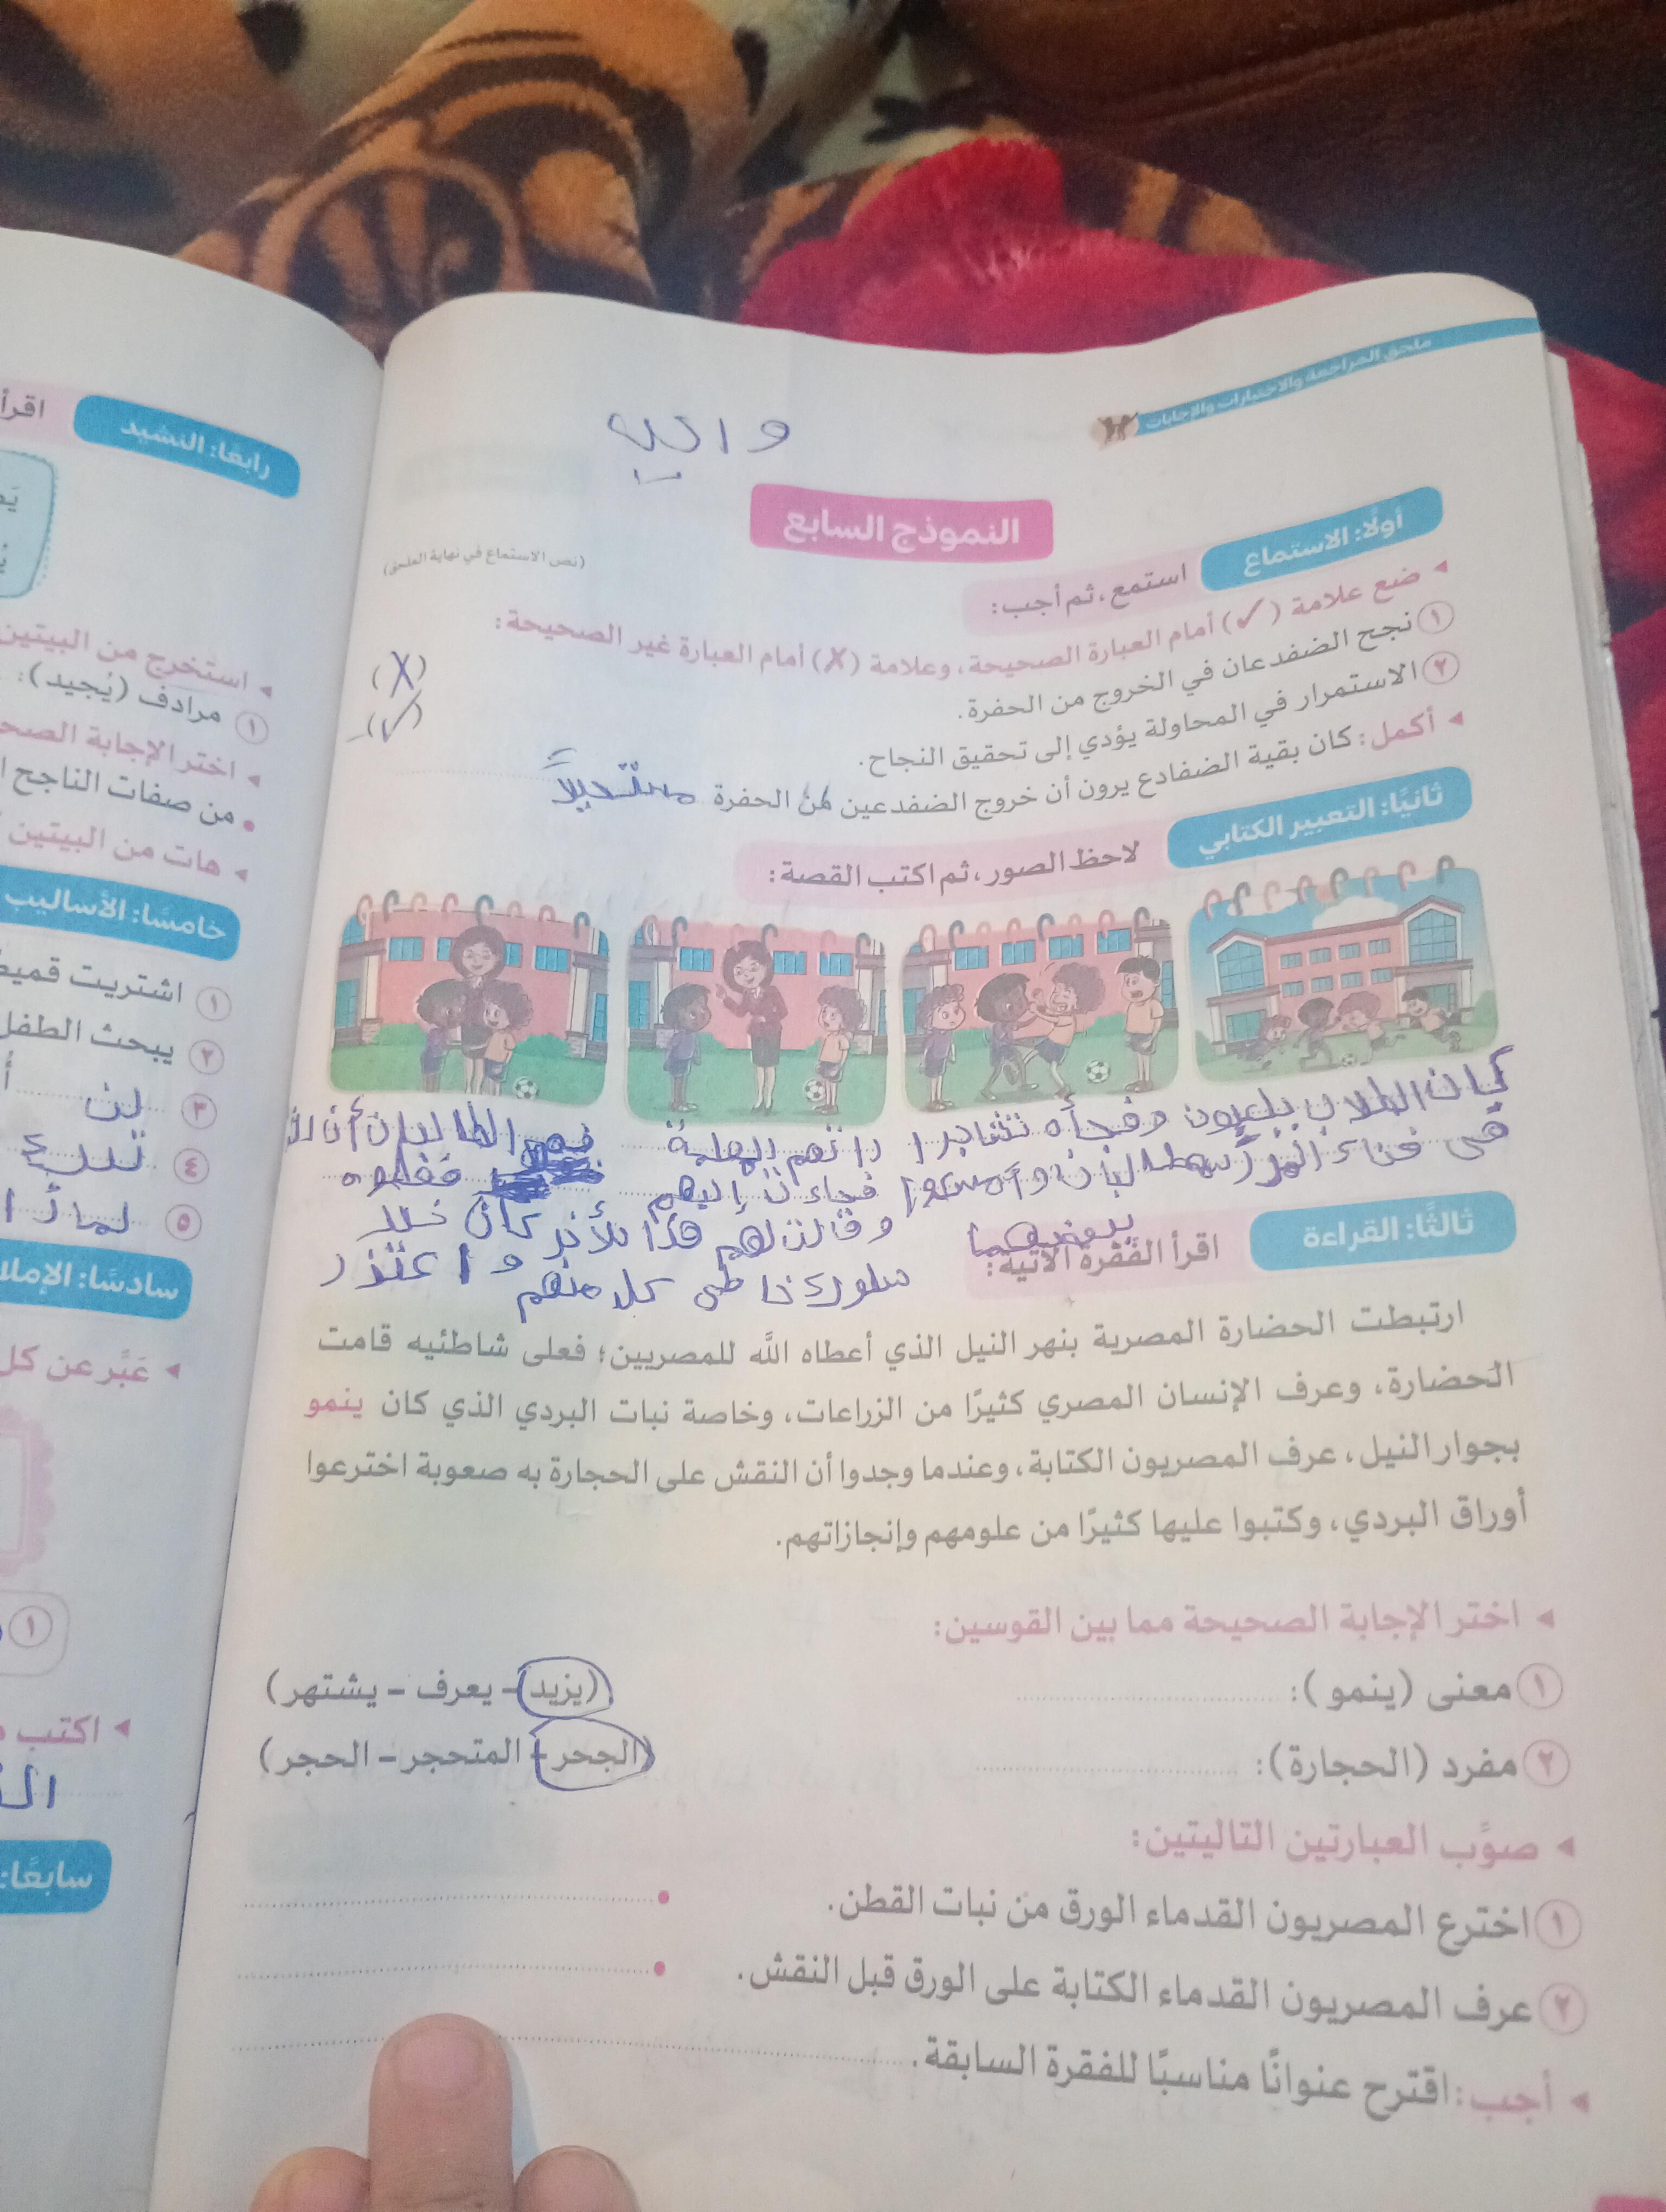 ملحق المراجعة والاختبارات والإجابات
النموذج السابع
أولًا: الاستماع
استمع، ثم أجب:
(نص الاستماع في نهاية الملحق)
ضع علامة (✓) أمام العبارة الصحيحة، وعلامة (✗) أمام العبارة غير الصحيحة:
١ نجح الضفدعان في الخروج من الحفرة. (X)
٢ الاستمرار في المحاولة يؤدي إلى تحقيق النجاح. (✓)
أكمل: كان بقية الضفادع يرون أن خروج الضفدعين من الحفرة مستحيلاً
ثانيًا: التعبير الكتابي
لاحظ الصور، ثم اكتب القصة:
كان الطلاب يلعبون وفجأه تشاجرا راتهم المعلمة فهم الطالبان أن
فى فناء فجاءت إليهم فعلوه
وقالت لهم هذا كان
سلوك خاطى كل منهم واعتذر
ثالثًا: القراءة
اقرأ الفقرة الآتية:
ارتبطت الحضارة المصرية بنهر النيل الذي أعطاه الله للمصريين؛ فعلى شاطئيه قامت
الحضارة، وعرف الإنسان المصري كثيرًا من الزراعات، وخاصة نبات البردي الذي كان ينمو
بجوار النيل، عرف المصريون الكتابة، وعندما وجدوا أن النقش على الحجارة به صعوبة اخترعوا
أوراق البردي، وكتبوا عليها كثيرًا من علومهم وإنجازاتهم.
اختر الإجابة الصحيحة مما بين القوسين:
١ معنى (ينمو): (يزيد – يعرف – يشتهر)
٢ مفرد (الحجارة): (الجحر – المتحجر – الحجر)
صوِّب العبارتين التاليتين:
١ اخترع المصريون القدماء الورق من نبات القطن.
٢ عرف المصريون القدماء الكتابة على الورق قبل النقش.
أجب: اقترح عنوانًا مناسبًا للفقرة السابقة.
اقرأ
رابعًا: النشيد
استخرج من البيتين
١ مرادف (يُجيد):
اختر الإجابة
من صفات الناجح
هات من البيتين
خامسًا: الأساليب
١ اشتريت
٢ يبحث الطفل
٣ لن
٤
٥ لماذا
سادسًا:
عَبِّر عن كل
١
اكتب
سابعًا: